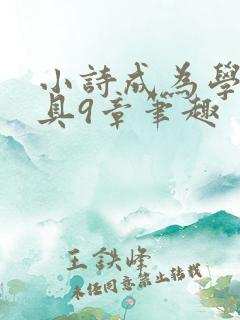 小詩成為學
具9章筆趣
王鉄峰
未經同意禁止轉載